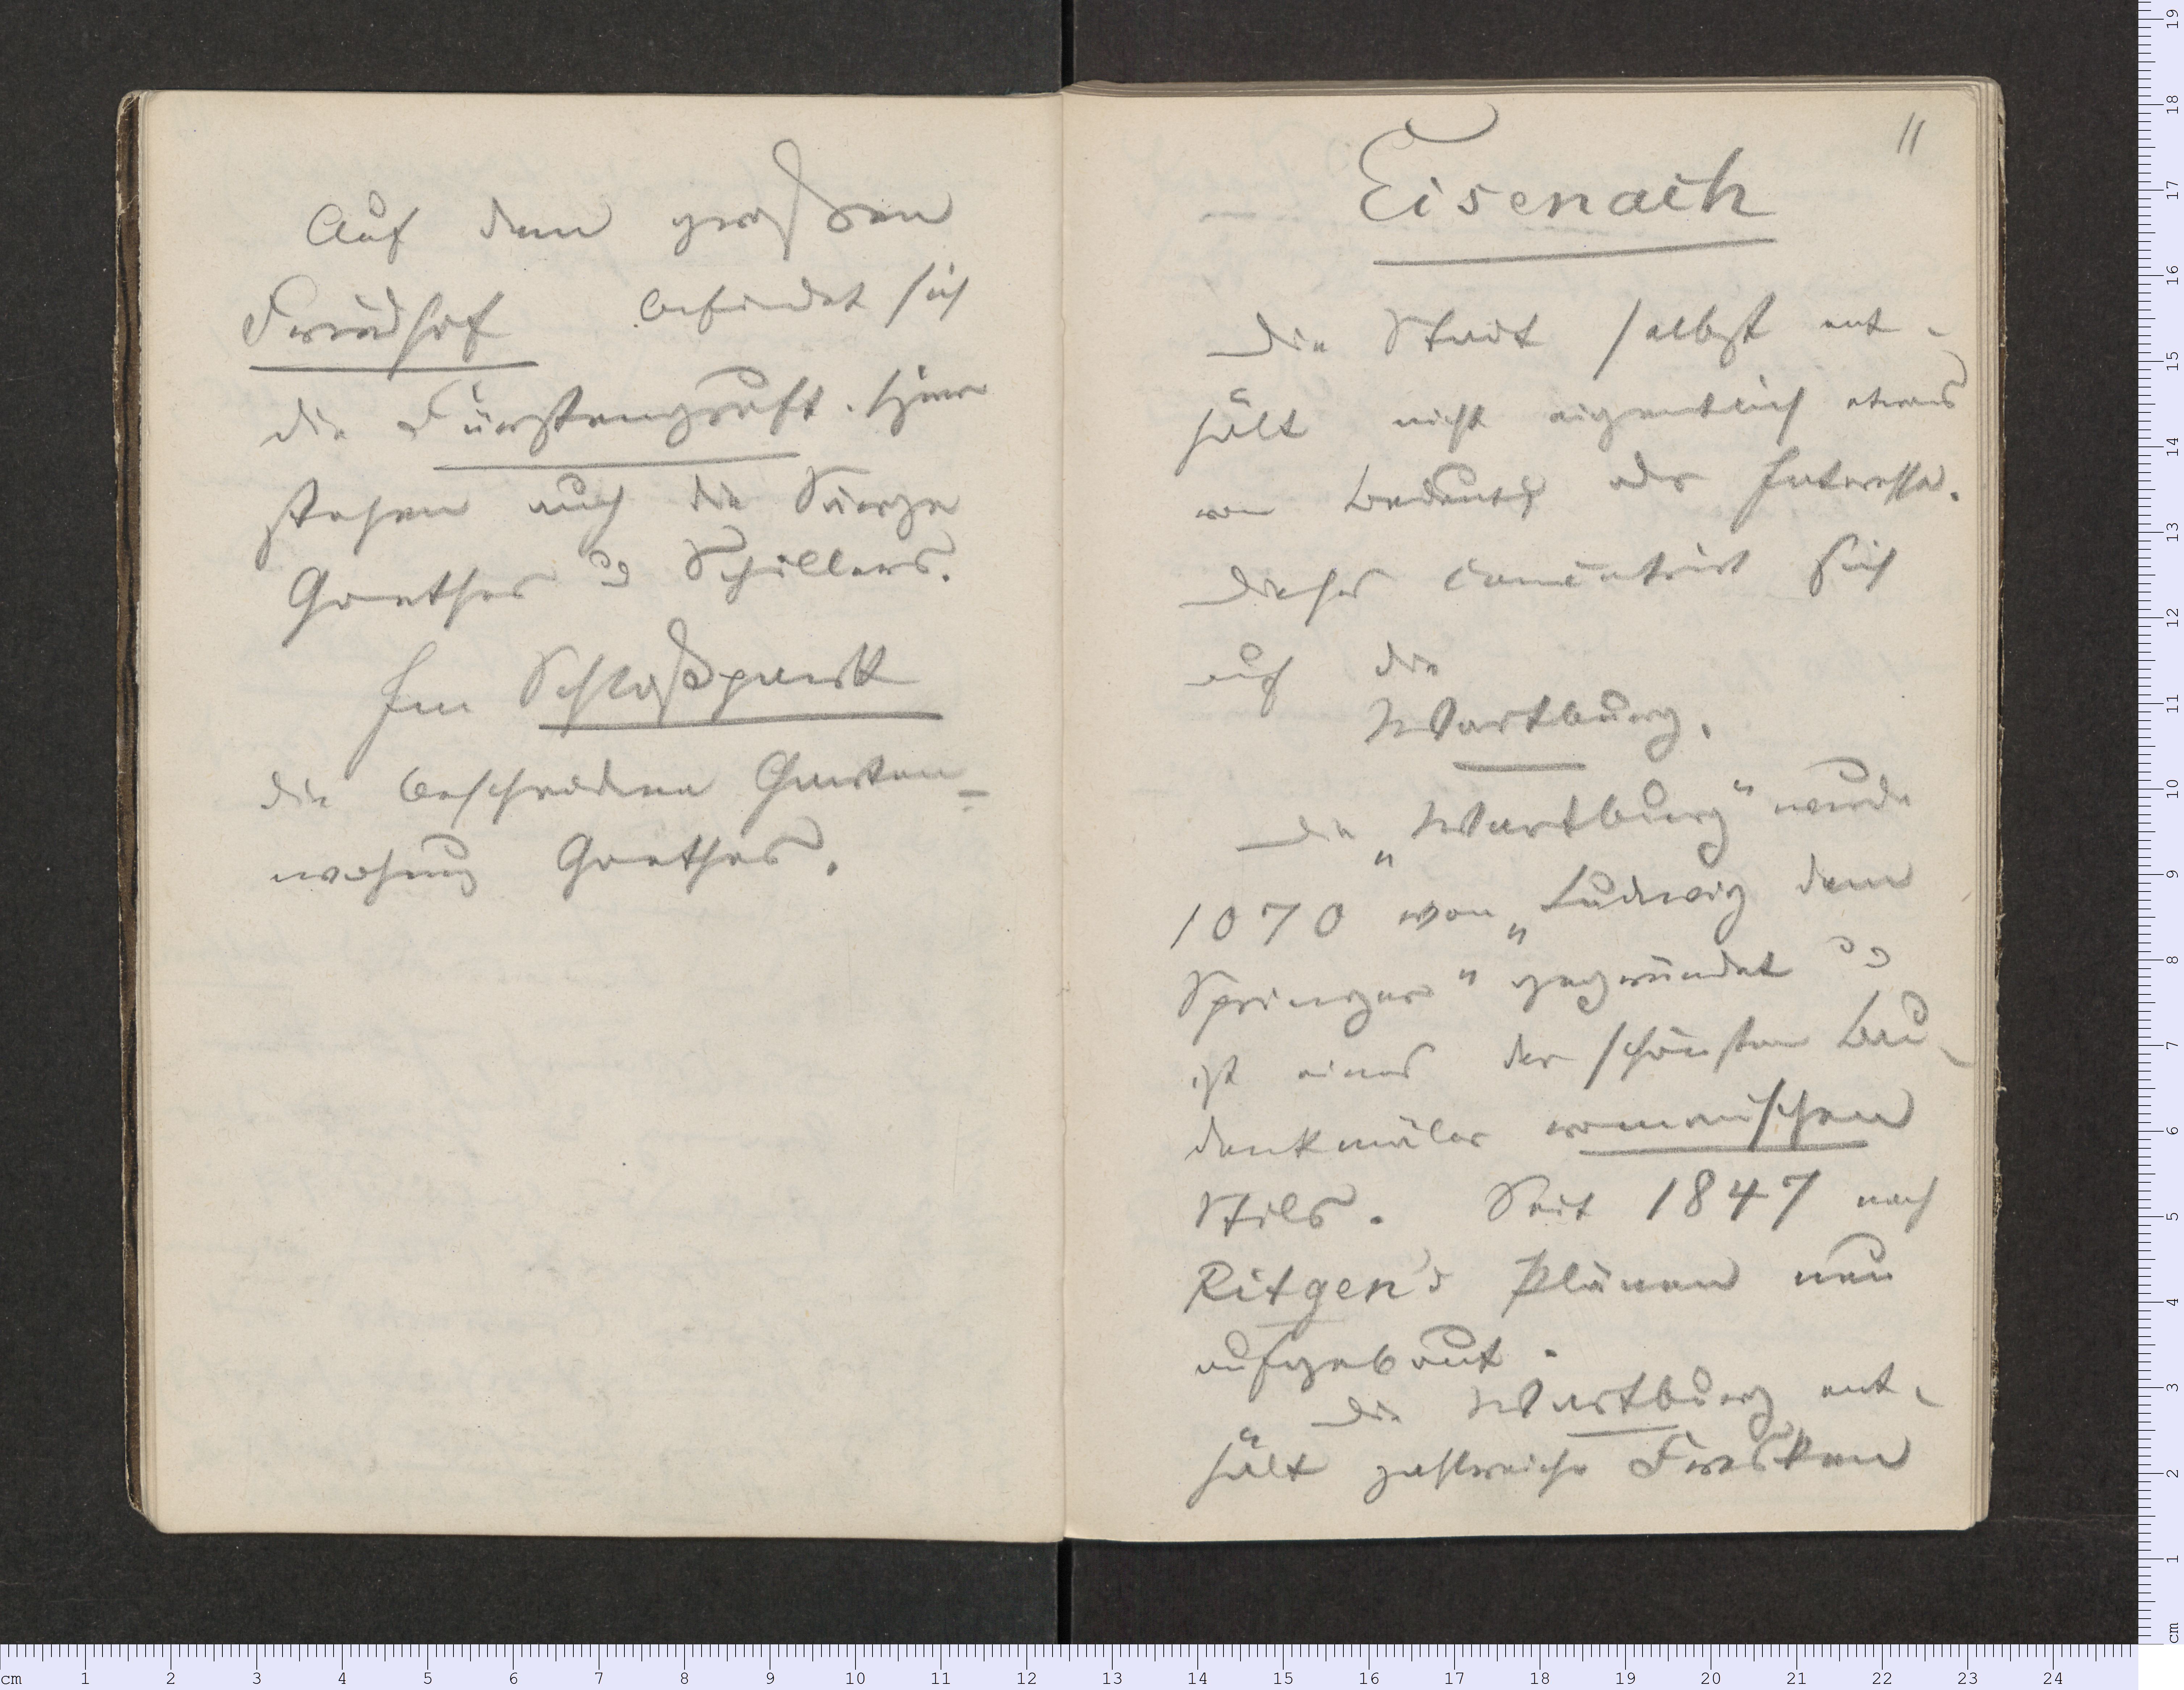 Auf dem großen
Friedhof befindet sich
die Fürstengruft. Hier
stehen auch die Särge
Goethes u Schillers.
Im Schloßpark
die bescheidene Garten=
wohnung Goethes.
11
Eisenach
Die Stadt selbst ent-
hält nicht eigentlich etwas
von Bedeutg oder Interesse.
Dieses concentrirt sich
auf die
Wartburg.
Die „Wartburg“ wurde
1070 von „Ludwig dem
Springer“ gegründet u
ist eines der schönsten Bau-
denkmäler romanischen
Stils. Seit 1847 nach
Ritgen's Plänen neu
aufgebaut.
Die Wartburg ent-
hält zahlreiche Fresken